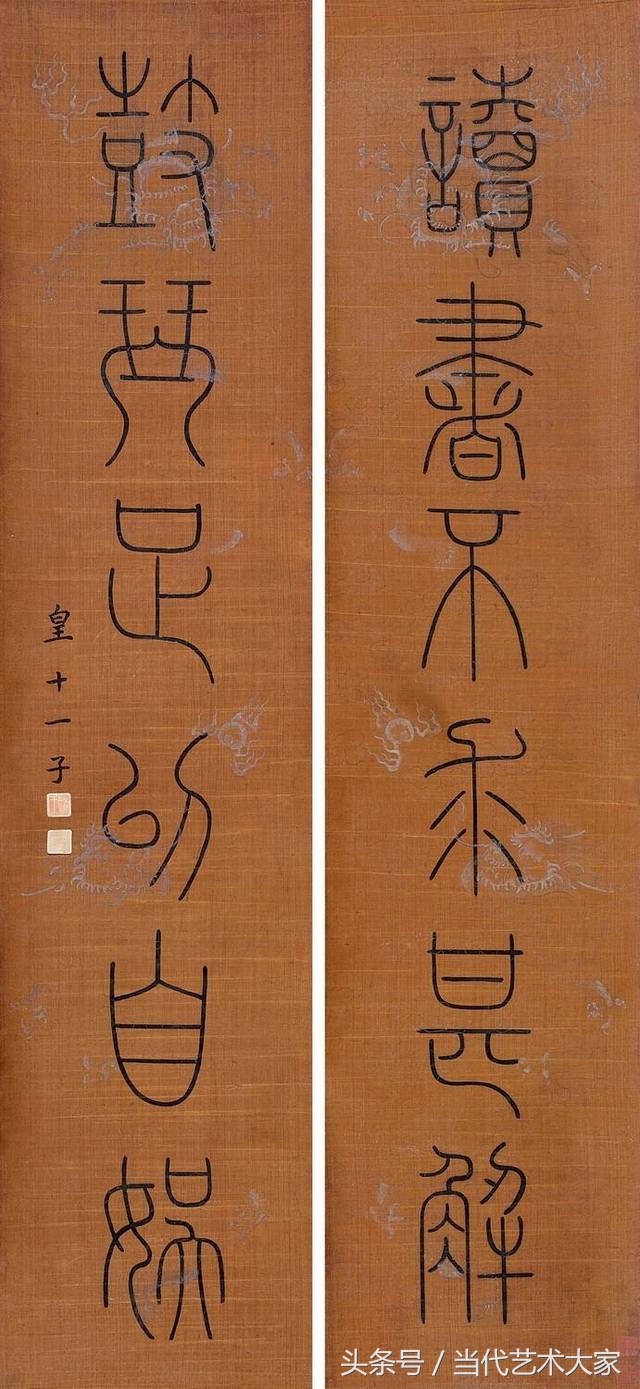 讀書不求甚解
鼓琴足以自娛
皇十一子
头条号 / 当代艺术大家